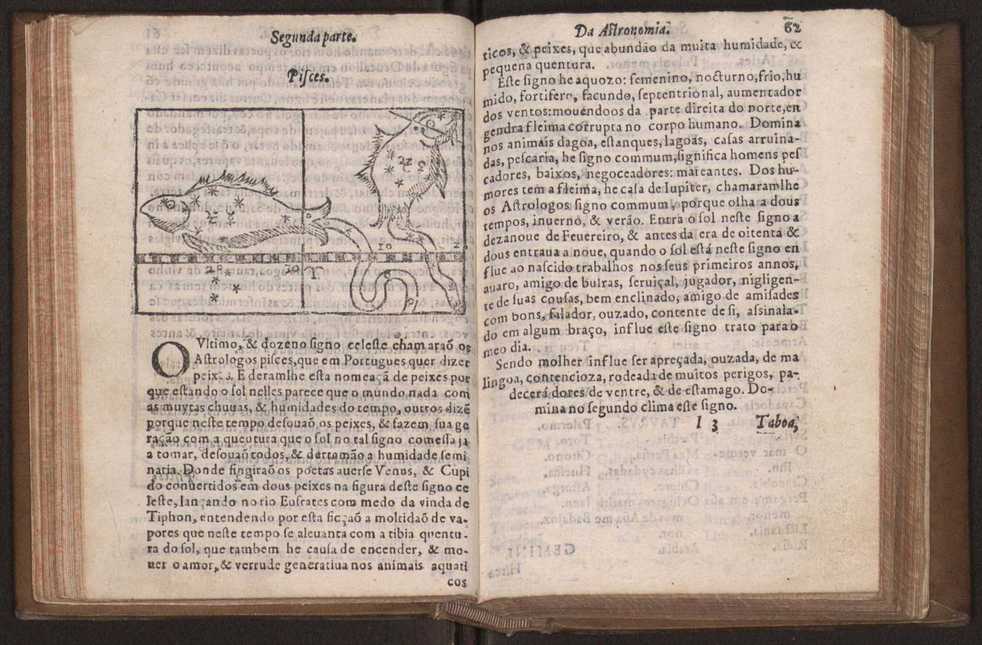 Segunda parte.
Pisces.
OVltimo, & dozeno signo celeste chamaraõ os
Astrologos pisces, que em Portugues quer dizer
peixes. E deramlhe esta nomeaçã de peixes por
que estando o sol nelles parece que o mundo nada com
as muytas chuuas, & humidades do tempo, outros dizẽ
porque neste tempo desouaõ os peixes, & fazem sua ge
ração com a quentura que o sol no tal signo comessa ja
a tomar, desouaõ todos, & derramão a humidade semi
naria. Donde fingiraõ os poetas auerse Venus, & Cupi
do conuertidos em dous peixes na figura deste signo ce
leste, lançando no rio Eufrates com medo da vinda de
Tiphon, entendendo por esta ficçaõ a moltidaõ de va-
pores que neste tempo se aleuanta com a tibia quentu-
ra do sol, que tambem he causa de encender, & mo-
uer o amor, & vertude generatiua nos animais aquati
cos
Da Astronomia. 62
ticos, & peixes, que abundão da muita humidade, &
pequena quentura.
Este signo he aquozo: femenino, nocturno, frio, hu
mido, fortifero, facundo, septentrional, aumentador
dos ventos: mouendoos da parte direita do norte, en
gendra fleima corrupta no corpo humano. Domina
nos animais dagoa, estanques, lagoas, casas arruina-
das, pescaria, he signo commum, significa homens pes
cadores, baixos, negoceadores: mareantes. Dos hu-
mores tem a fleima, he casa de Iupiter, chamaramlhe
os Astrologos signo commum, porque olha a dous
tempos, inuerno, & verão. Entra o sol neste signo a
dezanoue de Feuereiro, & antes da era de oitenta &
dous entraua a noue, quando o sol està neste signo en
flue ao nascido trabalhos nos seus primeiros annos,
auaro, amigo de bulras, seruiçal, jugador, nigligen-
te de suas cousas, bem enclinado, amigo de amisades
com bons, falador, ouzado, contente de si, assinala-
do em algum braço, influe este signo trato para o
meo dia.
Sendo molher influe ser apreçada, ouzada, de ma
lingoa, contencioza, rodeada de muitos perigos, pa-
decerá dores de ventre, & de estamago. Do-
mina no segundo clima este signo.
I 3 Taboa,